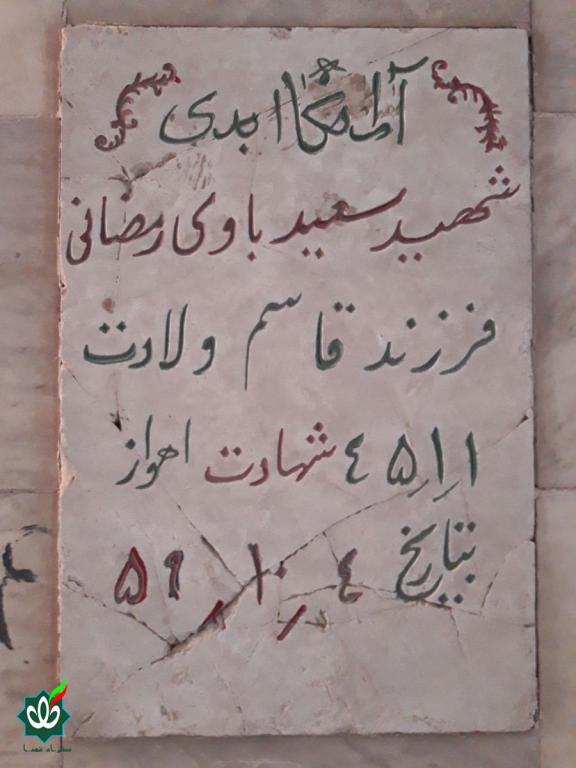 آرامگاه ابدی
شهید سعید باوی رمضانی
فرزند قاسم ولادت
۴۵/۱/۱ شهادت اهواز
بتاریخ ۵۹/۱۰/۴